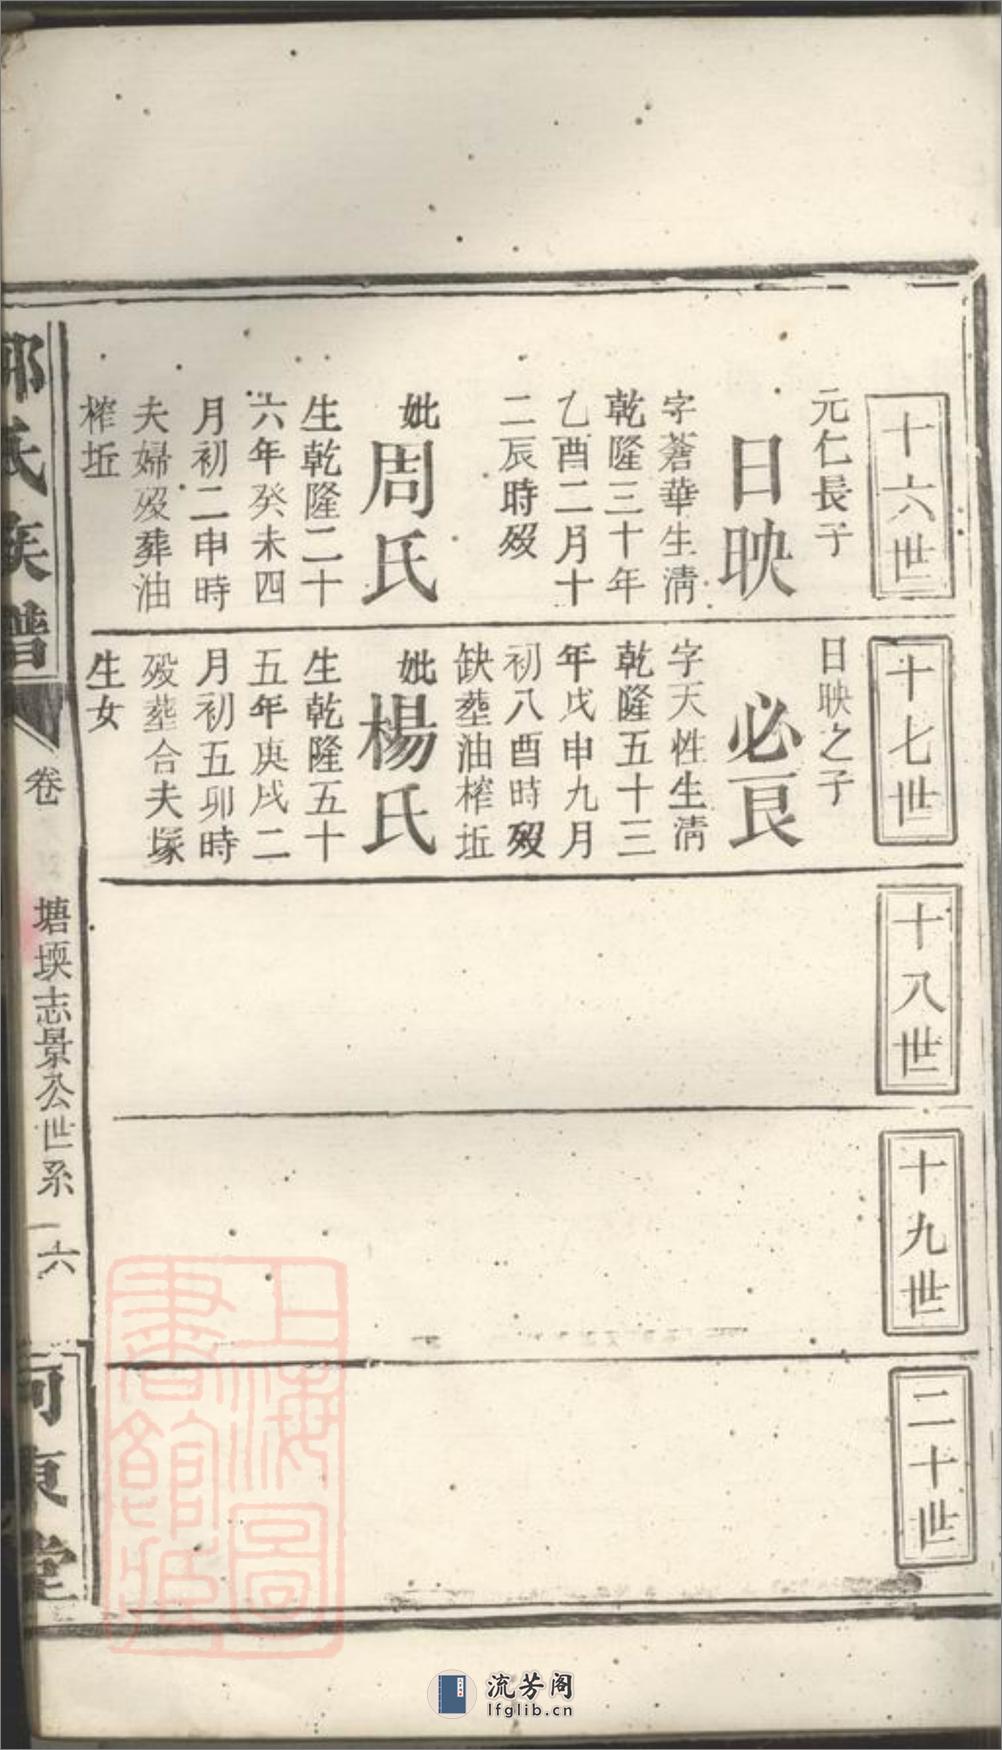 十六世
元仁長子
日映
字蒼華生清
乾隆三十年
乙酉二月十
二辰時歿
妣周氏
生乾隆二十
六年癸未四
月初二申時
夫婦歿葬油
榨坵
十七世
日映之子
必艮
字天性生清
乾隆五十三
年戊申九月
初八酉時歿
缺塟油榨坵
妣楊氏
生乾隆五十
五年庚戌二
月初五卯時
歿塟合夫塚
生女
十八世
十九世
二十世
氏族譜
卷
塘堧志景公世系
六
河東堂
上海圖書館藏
流芳阁
lfglib.cn